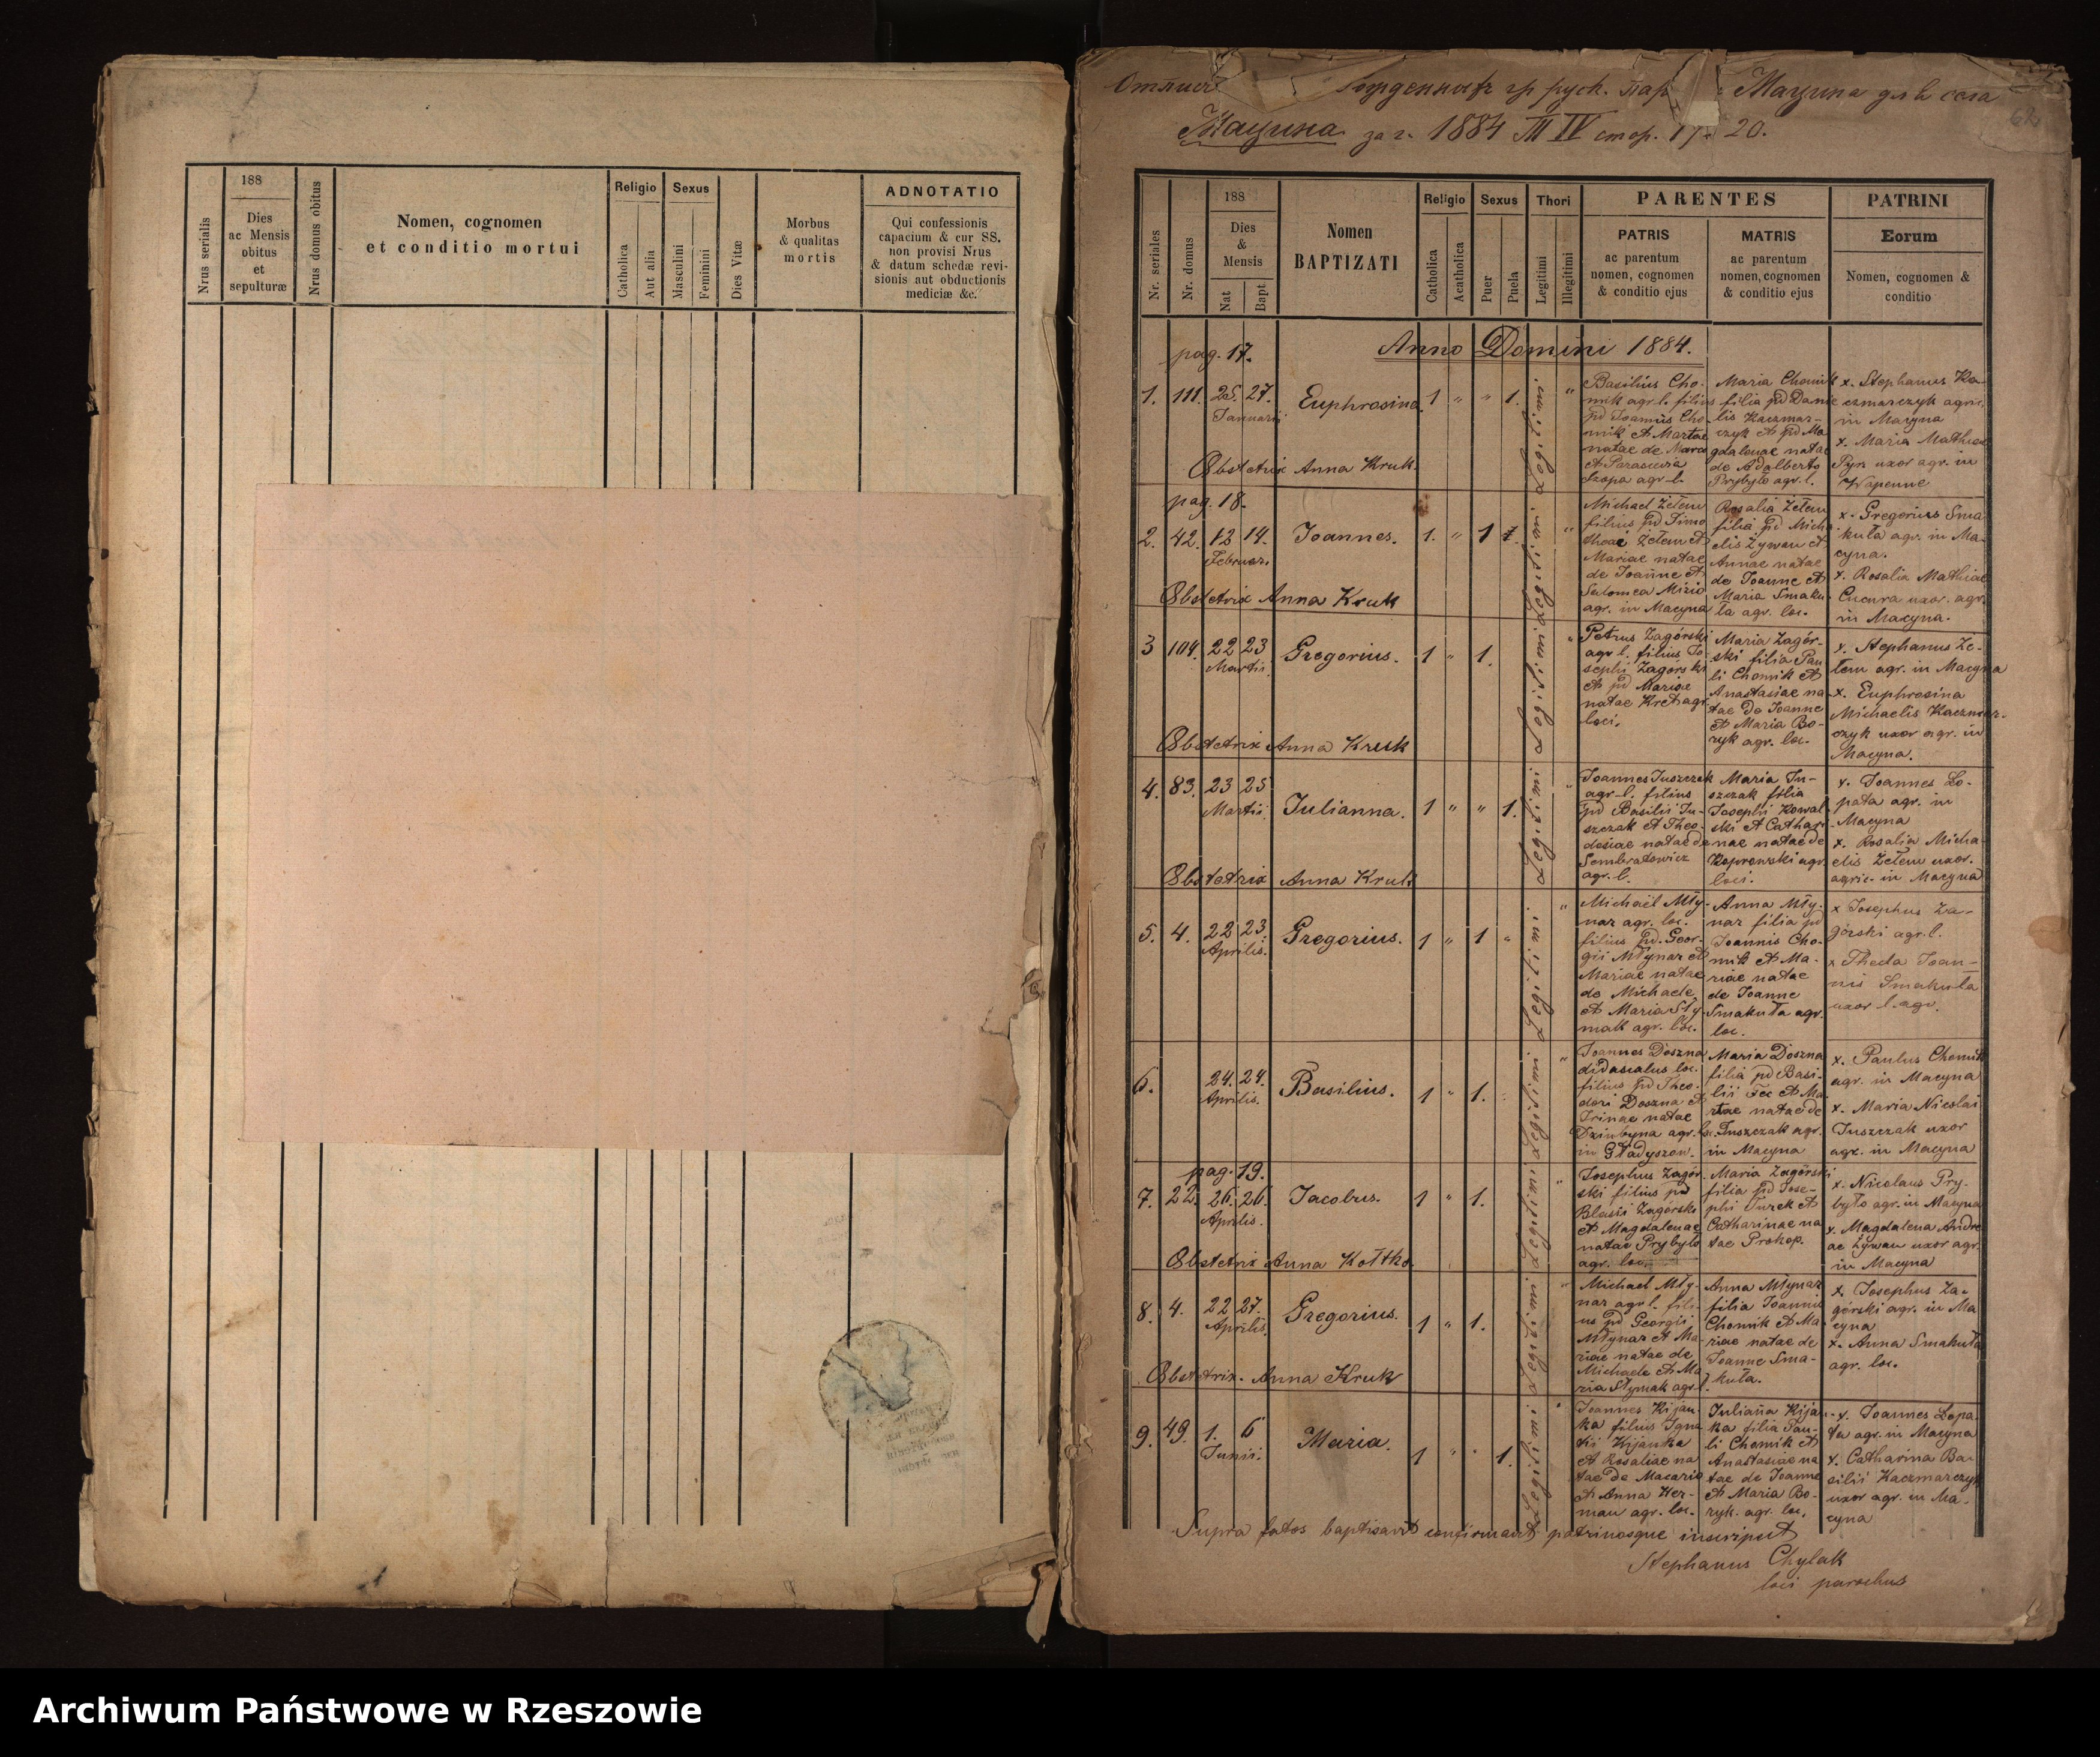 188
Nrus serialis
Dies
ac Mensis
obitus
et
sepulturæ
Nrus domus obitus
Nomen, cognomen
et conditio mortui
Religio
Catholica
Aut alia
Sexus
Masculini
Feminini
Dies Vitæ
Morbus
& qualitas
mortis
ADNOTATIO
Qui confessionis
capacium & cur SS.
non provisi Nrus
& datum schedæ revi-
sionis aut obductionis
mediciæ &c.
62
Мацина за г. 1884 III IV стор. 17- 20.
Nr. seriales
Nr. domus
188
Dies
&
Mensis
Nat
Bapt
Nomen
BAPTIZATI
Religio
Catholica
Acatholica
Sexus
Puer
Puela
Thori
Legitimi
Illegitimi
PARENTES
PATRIS
ac parentum
nomen, cognomen
& conditio ejus
MATRIS
ac parentum
nomen, cognomen
& conditio ejus
PATRINI
Eorum
Nomen, cognomen &
conditio
pag. 17. Anno Domini 1884.
1. 111. 25. 27. Euphrosina 1 " " 1. Legitimi "
Januarii
Basilius Cho-
mik agr. l. filius
pd Joannis Cho-
mik et Martae
natae de Marco
et Parasceva
Szopa agr. l.
Maria Chomik
filia pd Danie
lis Kaczmar-
czyk et pd Ma
gdalenae natae
de Adalberto
Prybyło agr. l.
x. Stephanus Ka-
czmarczyk agric.
in Macyna
x. Maria Mathiae
Pyrz uxor agr. in
Wapenne
Obstetrix Anna Kruk.
pag. 18.
2. 42. 12 14. Joannes. 1. " 1 Legitimi "
Februar.
Michael Żełem
filius pd Timo
theai Żełem et
Mariae natae
de Joanne et
Salomea Mizio
agr. in Macyna
Rosalia Żełem
filia pd Micha
elis Żywau et
Annae natae
de Joanne et
Maria Smaku-
ła agr. loc.
x. Gregorius Sma
kuła agr. in Ma-
cyna.
x. Rosalia Mathiae
Cucura uxor. agr.
in Macyna.
Obstetrix Anna Kruk
3 104. 22 23 Gregorius. 1 " 1. Legitimi "
Martii
Petrus Zagórski
agr l. filius Jo-
sephi Zagórski
et pd Mariae
natae Kret agr.
loci.
Maria Zagór-
ski filia Pau
li Chomik et
Anastasiae na
tae de Joanne
et Maria Bo-
ryk agr. loc.
x. Stephanus Że-
łem agr. in Macyna
x. Euphrosina
Michaelis Kaczmar-
czyk uxor agr. in
Macyna.
Obstetrix Anna Kruk
4. 83. 23 25 Julianna. 1 " " 1. Legitimi "
Martii
Joannes Juszczak
agr. l. filius
pd Basilii Ju-
szczak et Theo-
dosiae natae de
Sembratowicz
agr. l.
Maria Ju-
szczak filia
Josephi Kowal
ski et Cathari-
nae natae de
Koprowski agr.
loci.
x. Joannes Ło-
pata agr. in
Macyna
x. Rosalia Micha
elis Żełem uxor.
agric. in Macyna
Obstetrix Anna Kruk
5. 4. 22 23. Gregorius. 1 " 1 " Legitimi "
Aprilis.
Michaël Mły-
nar agr. loc.
filius pd. Geor-
gii Młynar et
Mariae natae
de Michaele
et Maria Sty-
mak agr. loc.
Anna Mły-
nar filia pd
Joannis Cho-
mik et Ma-
riae natae
de Joanne
Smakuła agr.
loc.
x Josephus Za-
górski agr. l.
x Thecla Joan-
nis Smakuła
uxor l. agr.
6. 24. 24. Basilius. 1 " 1. Legitimi "
Aprilis.
Joannes Doszna
didascalus loc.
filius pd Theo-
dori Doszna et
Irinae natae
Dziubyna agr. loc.
in Gładyszow.
Maria Doszna
filia pd Basi-
lii Fec et Ma
rtae natae de
Juszczak agr.
in Macyna
x. Paulus Chomik
agr. in Macyna
x. Maria Nicolai
Juszczak uxor
agr. in Macyna
pag. 19.
7. 22. 26. 26. Jacobus. 1 " 1. Legitimi "
Aprilis.
Josephus Zagór
ski filius pd
Blasii Zagórski
et Magdalenae
natae Prybyło
agr. loc.
Maria Zagórski
filia pd Jose-
phi Turek et
Catharinae na
tae Prokop.
x. Nicolaus Pry-
było agr. in Macyna
x. Magdalena Andre
ae Żywau uxor agr.
in Macyna
Obstetrix Anna Kottko.
8. 4. 22 27. Gregorius. 1 " 1. Legitimi "
Aprilis.
Michael Mły-
nar agr l. fili-
us pd Georgii
Młynar et Ma-
riae natae de
Michaele et Ma
ria Stymak agr. l.
Anna Młynar
filia Joannis
Chomik et Ma-
riae natae de
Joanne Sma-
kuła.
x. Josephus Za-
górski agr. in Ma
cyna
x. Anna Smakuła
agr. loc.
Obstetrix. Anna Kruk
9. 49. 1. 6 Maria. 1 " " 1. Legitimi "
Junii.
Joannes Kijan-
ka filius Igna
tii Kijanka
et Rosaliae na
tae de Macario
et Anna Her-
man agr. loc.
Julianna Kijan-
ka filia Pau-
li Chomik et
Anastasiae na
tae de Joanne
et Maria Bo-
ryk. agr. loc.
x. Joannes Łopa-
ta agr. in Macyna
x. Catharina Ba-
silii Kaczmarczyk
uxor agr. in Ma-
cyna
Supra fatos baptisavit confirmavit patrinosque inscripsit
Stephanus Chylak
loci parochus
Archiwum Państwowe w Rzeszowie